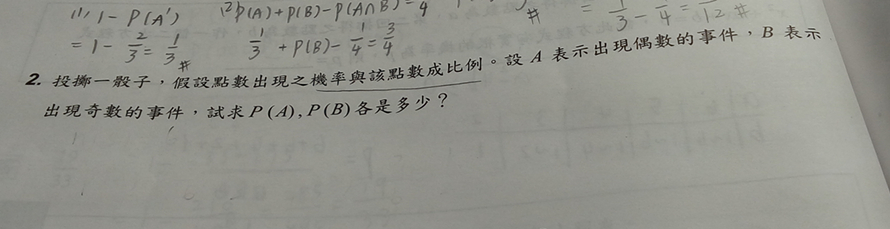 (1) 1 - P(A')
= 1 - 2/3 = 1/3 #
(2) P(A) + P(B) - P(A∩B) = 3/4
1/3 + P(B) - 1/4 = 3/4
#
= 1/3 - 1/4 = 1/12 #
2. 投擲一骰子，假設點數出現之機率與該點數成比例。設 A 表示出現偶數的事件，B 表示
出現奇數的事件，試求 P (A), P (B) 各是多少？